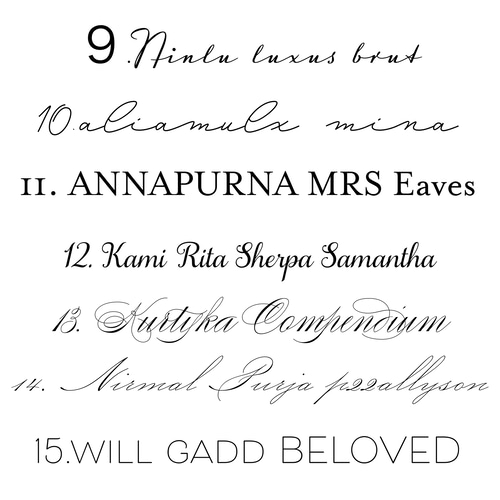 9.Ninlu luxus brut
10.aliamulx mina
11. ANNAPURNA MRS Eaves
12. Kami Rita Sherpa Samantha
13. Kurtyka Compendium
14. Nirmal Purja p22allyson
15.WILL GADD BELOVED